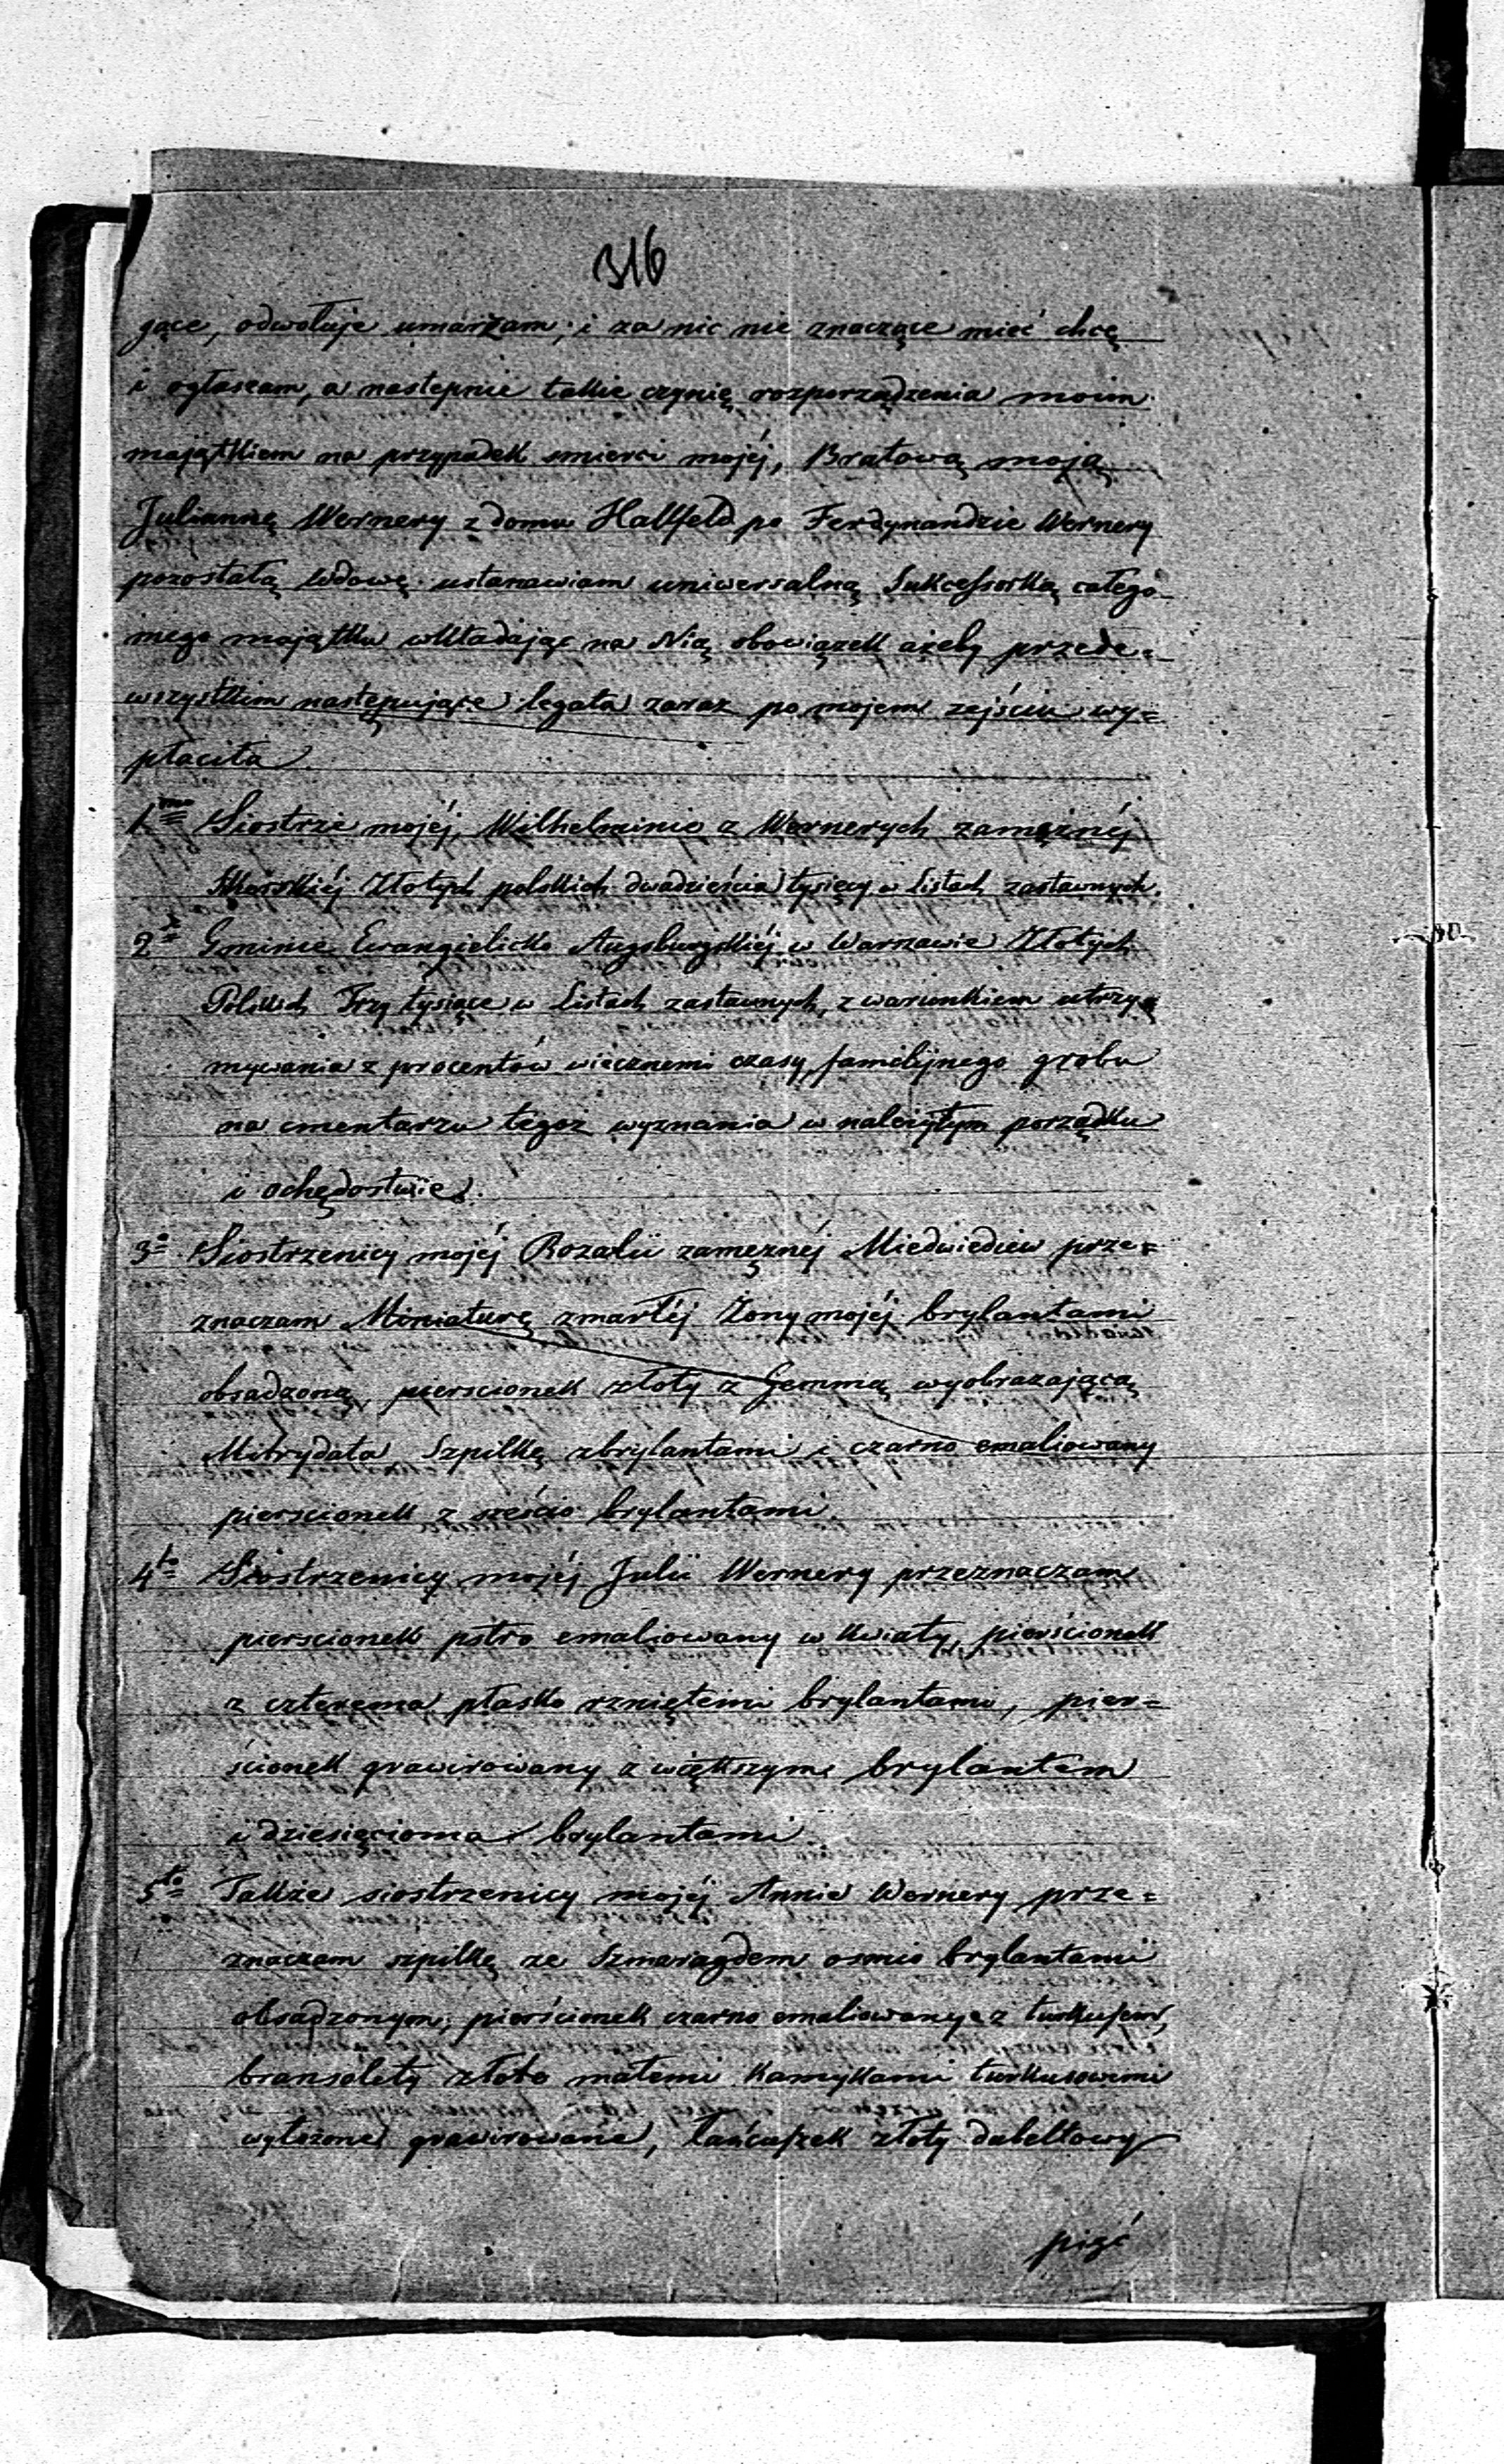 316
gące, odwołuje umarzam, i za nic nie znaczące mieć chcę
i ogłaszam, a następnie takie czynię rozporządzenia moim
majątkiem na przypadek smierci mojéj, Bratową moją
Juliannę Wernery z domu Hallfeld po Ferdynandzie Wernery
pozostałą wdowę ustanawiam uniwersalną Sukcessorką całego
mego majątku wkładając na Nią obowiązek ażeby przede=
wszystkim następujące legata zaraz po mojem zejściu wy=
płaciła
1mo Siostrze mojéj Wilhelminie z Wernerych zamężnéj
Złotych polskich dwadzieścia tysięcy w Listach zastawnych.
2o Gminie Ewangielicko Augsburgskiéj w Warszawie Złotych
Polskich Trzy tysiące w Listach zastawnych, z warunkiem utrzy=
mywania z procentów wiecznemi czasy familijnego grobu
na cmentarzu tegoż wyznania w należytym porządku
i ochędostwie.
3o Siostrzenicy mojéj Rozalii zamężnéj Miedwiediew prze=
znaczam Miniaturę zmarłéj Żony mojéj brylantami
obsadzoną, pierscionek złoty z Gemmą wyobrazającą
Mitrydata, Szpilkę z brylantami i czarno emaliowany
pierscionek z sześcio brylantami.
4to Siostrzenicy mojéj Julii Wernery przeznaczam
pierscionek pstro emaliowany w kwiaty, pierścionek
z czterema płasko rzniętemi brylantami, pier=
ścionek grawirowany z większym brylantem
i dziesięcioma brylantami.
5to Także siostrzenicy mojéj Annie Wernery prze=
znaczam szpilkę ze Szmaragdem osmio brylantami
obsadzonym, pierścionek czarno emaliowany z turkusem,
bransolety złote małemi kamykami turkusowemi
wyłożone grawirowane, łańcuszek złoty dubeltowy
pięć